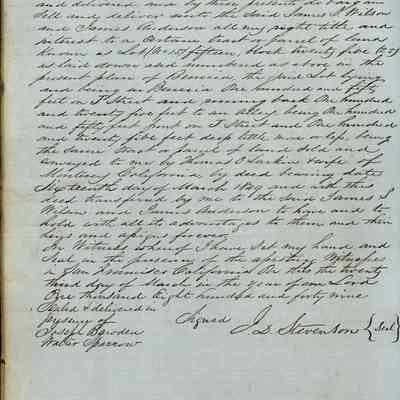 and delivered and by these presents do bargain
Sell and deliver unto the Said James S Wilson
and James Anderson all my right title and
interest to a certain tract or parcel of land
known as Lot No (15) fifteen, block twenty five (25)
as laid down and numbered as above in the
present plan of Benicia, the Said Lot lying
and being in Benicia One hundred and fifty
feet on I Street and running back One hundred
and twenty five feet to an alley being One hundred
and fifty feet front on I Street and One hundred
and twenty five feet deep little more or less being
the Same Tract or parcel of land Sold and
conveyed to me by Thomas O Larkin & wife of
Monterey California, by deed bearing date
Sixteenth day of March 1849 and with this
deed transferred by me to the Said James S
Wilson and James Anderson to have and to
hold with all its advantages to them and their
heirs and assigns forever.
In Witness whereof I have Set my hand and
Seal in the presence of the Witnesses
a San Francisco California On this the twenty
third day of March in the year of our Lord
One thousand Eight hundred and forty nine
Sealed & delivered in
presence of
Signed J. D. Stevenson {Seal}
Joseph Bowden
Walter Sperrow